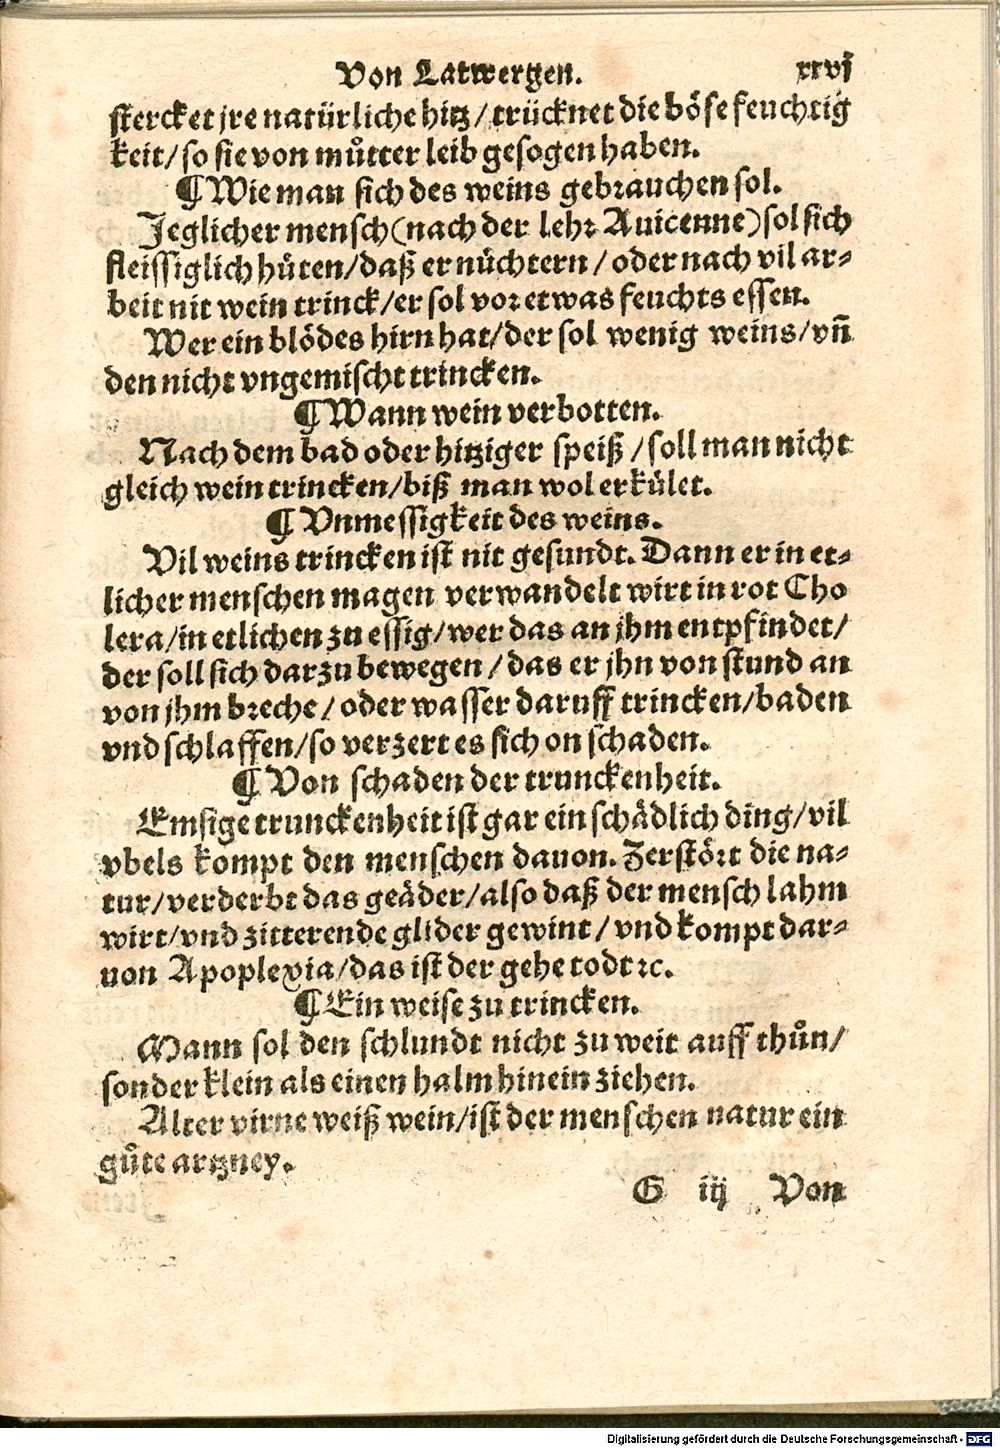 Von Latwergen. xxvj
stercket jre natürliche hitz/ trücknet die böse feuchtig
keit/ so sie von můtter leib gesogen haben.
¶ Wie man sich des weins gebrauchen sol.
Jeglicher mensch (nach der lehr Auicenne) sol sich
fleissiglich hüten/ daß er nüchtern/ oder nach vil ar-
beit nit wein trinck/ er sol vor etwas feuchts essen.
Wer ein blödes hirn hat/ der sol wenig weins/ vñ
den nicht vngemischt trincken.
¶ Wann wein verbotten.
Nach dem bad oder hitziger speiß/ soll man nicht
gleich wein trincken/ biß man wol erkület.
¶ Vnmessigkeit des weins.
Vil weins trincken ist nit gesundt. Dann er in et-
licher menschen magen verwandelt wirt in rot Cho
lera/ in etlichen zu essig/ wer das an jhm entpfindet/
der soll sich darzu bewegen/ das er jhn von stund an
von jhm breche/ oder wasser daruff trincken/ baden
vnd schlaffen/ so verzert es sich on schaden.
¶ Von schaden der trunckenheit.
Emsige trunckenheit ist gar ein schädlich ding/ vil
vbels kompt den menschen dauon. Zerstört die na-
tur/ verderbt das geäder/ also daß der mensch lahm
wirt/ vnd zitterende glider gewint/ vnd kompt dar-
uon Apoplexia/ das ist der gehe todt ꝛc.
¶ Ein weise zu trincken.
Mann sol den schlundt nicht zu weit auff thůn/
sonder klein als einen halm hinein ziehen.
Alter virne weiß wein/ ist der menschen natur ein
gůte artzney.
G iij Von
Digitalisierung gefördert durch die Deutsche Forschungsgemeinschaft - DFG